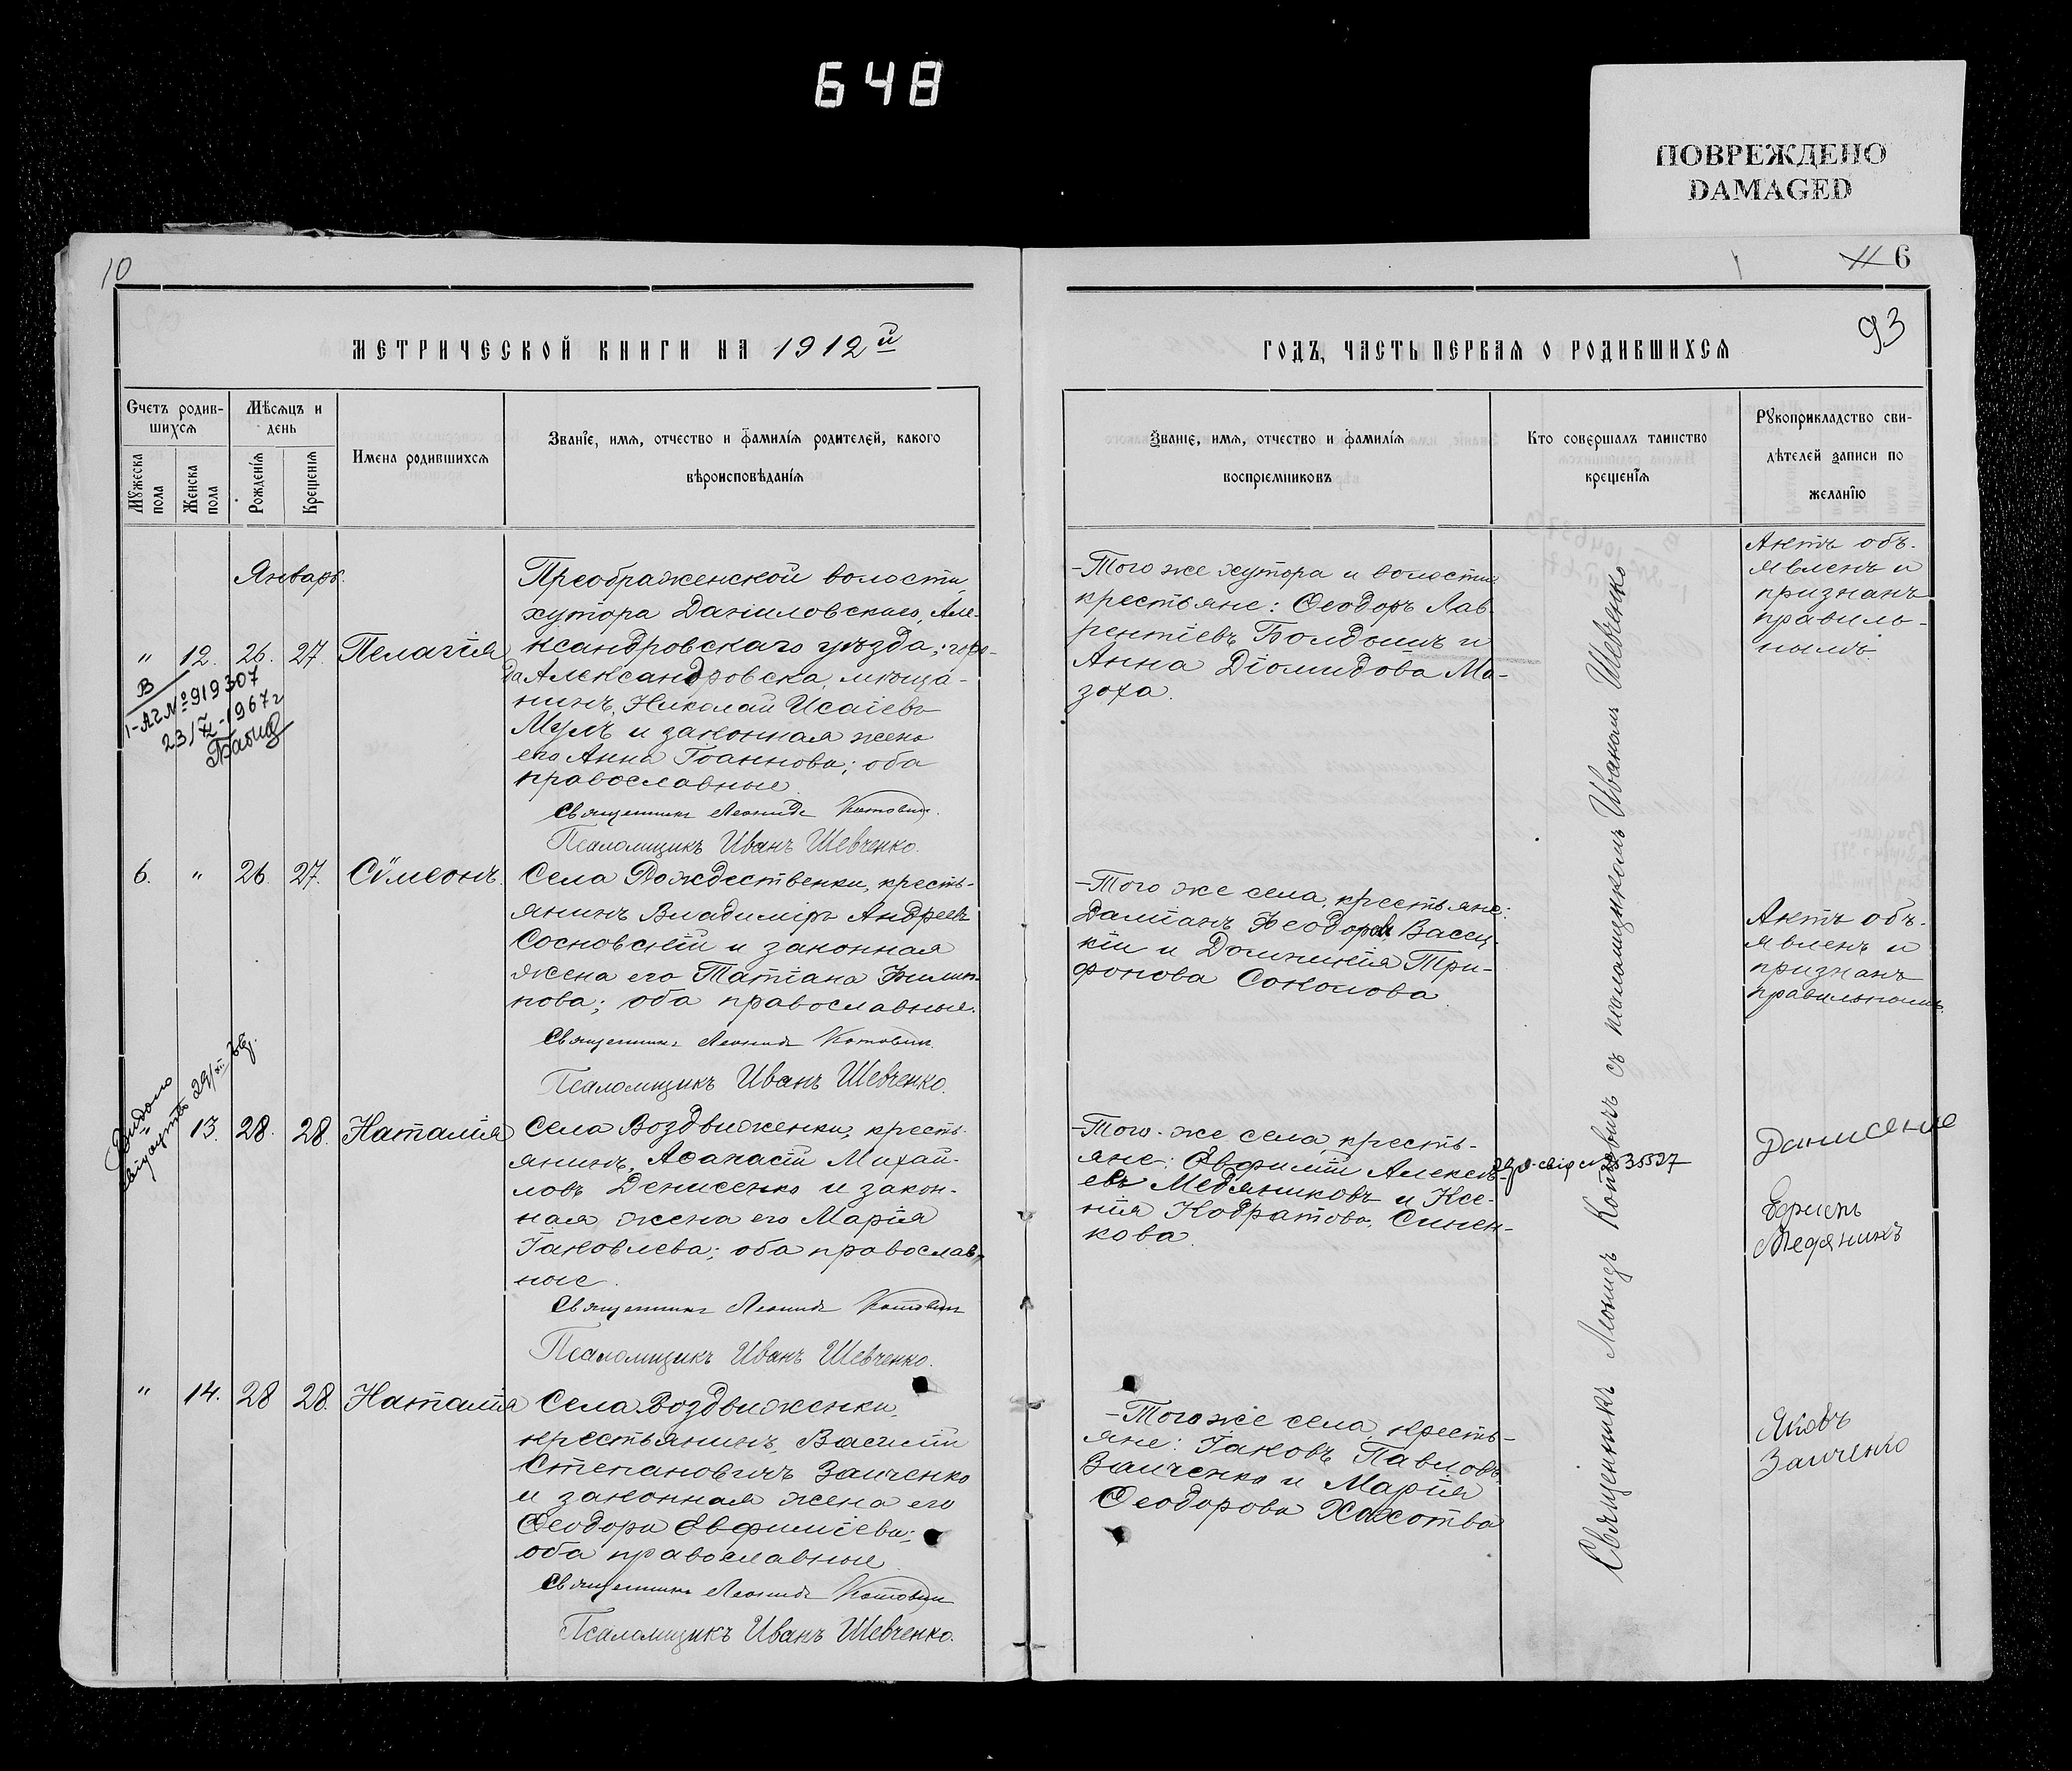 648
ПОВРЕЖДЕНО
DAMAGED
10
11 6
93
МЕТРИЧЕСКОЙ КНИГИ НА 1912й
ГОДЪ, ЧАСТЬ ПЕРВАЯ О РОДИВШИХСЯ
Счетъ родив-
шихся
Мѣсяцъ и
день
Мужеска
пола
Женска
пола
Рожденія
Крещенія
Имена родившихся
Званіе, имя, отчество и фамилія родителей, какого
вѣроисповѣданія
Званіе, имя, отчество и фамилія
воспріемниковъ
Кто совершалъ таинство
крещенія
Рукоприкладство сви-
дѣтелей записи по
желанію
Январь.
" 12. 26. 27. Пелагія
В
1-АГ № 919307
1967г
Преображенской волости,
хутора Даниловскаго, Але-
ксандровскаго уѣзда; горо-
да Александровска, мѣща-
нинъ, Николай Исаіевъ
Мулъ и законная жена
его Анна Іоаннова; оба
православные
Священникъ Леонидъ Котовичъ.
Псаломщикъ Иванъ Шевченко.
-Того же хутора и волости
крестьяне: Ѳеодоръ Лав-
рентіевъ Болдышъ и
Анна Діомидова Ма-
зоха.
Актъ объ-
явленъ и
признанъ
правиль-
нымъ.
6. " 26. 27. Сѵмеонъ.
Села Рождественки, кресть-
янинъ Владиміръ Андреевъ
Сосновскій и законная
жена его Татіана Филип-
пова; оба православные.
Священникъ Леонидъ Котовичъ.
Псаломщикъ Иванъ Шевченко.
-Того же села, крестьяне:
Даміанъ Ѳеодоровъ Васец-
кій и Домникія Три-
фонова Соколова
Актъ объ-
явленъ и
признанъ
правильнымъ
13. 28. 28. Наталія
Села Воздвиженки, кресть-
янинъ, Аѳанасій Михай-
ловъ Денисенко и закон-
ная жена его Марія
Іаковлева; оба православ-
ные.
Священникъ Леонидъ Котовичъ
Псаломщикъ Иванъ Шевченко.
-Того-же села, кресть-
яне: Евфимій Алексѣ-
евъ Медяниковъ и Ксе-
нія Кодратова, Синен-
кова.
35527
Данисенко
Ефимъ
Медяникъ
" 14. 28 28. Наталія
Села Воздвиженки,
крестьянинъ, Василій
Степановичъ Заиченко
и законная жена его
Ѳеодора Евфиміева;
оба православные
Священникъ Леонидъ Котовичъ
Псаломщикъ Иванъ Шевченко.
-Того же села, кресть-
яне: Іаковъ Павловъ
Заиченко и Марія
Ѳеодорова Хахотва
Яковъ
Заиченко
Священникъ Леонидъ Котовичъ съ псаломщикомъ Иваномъ Шевченко